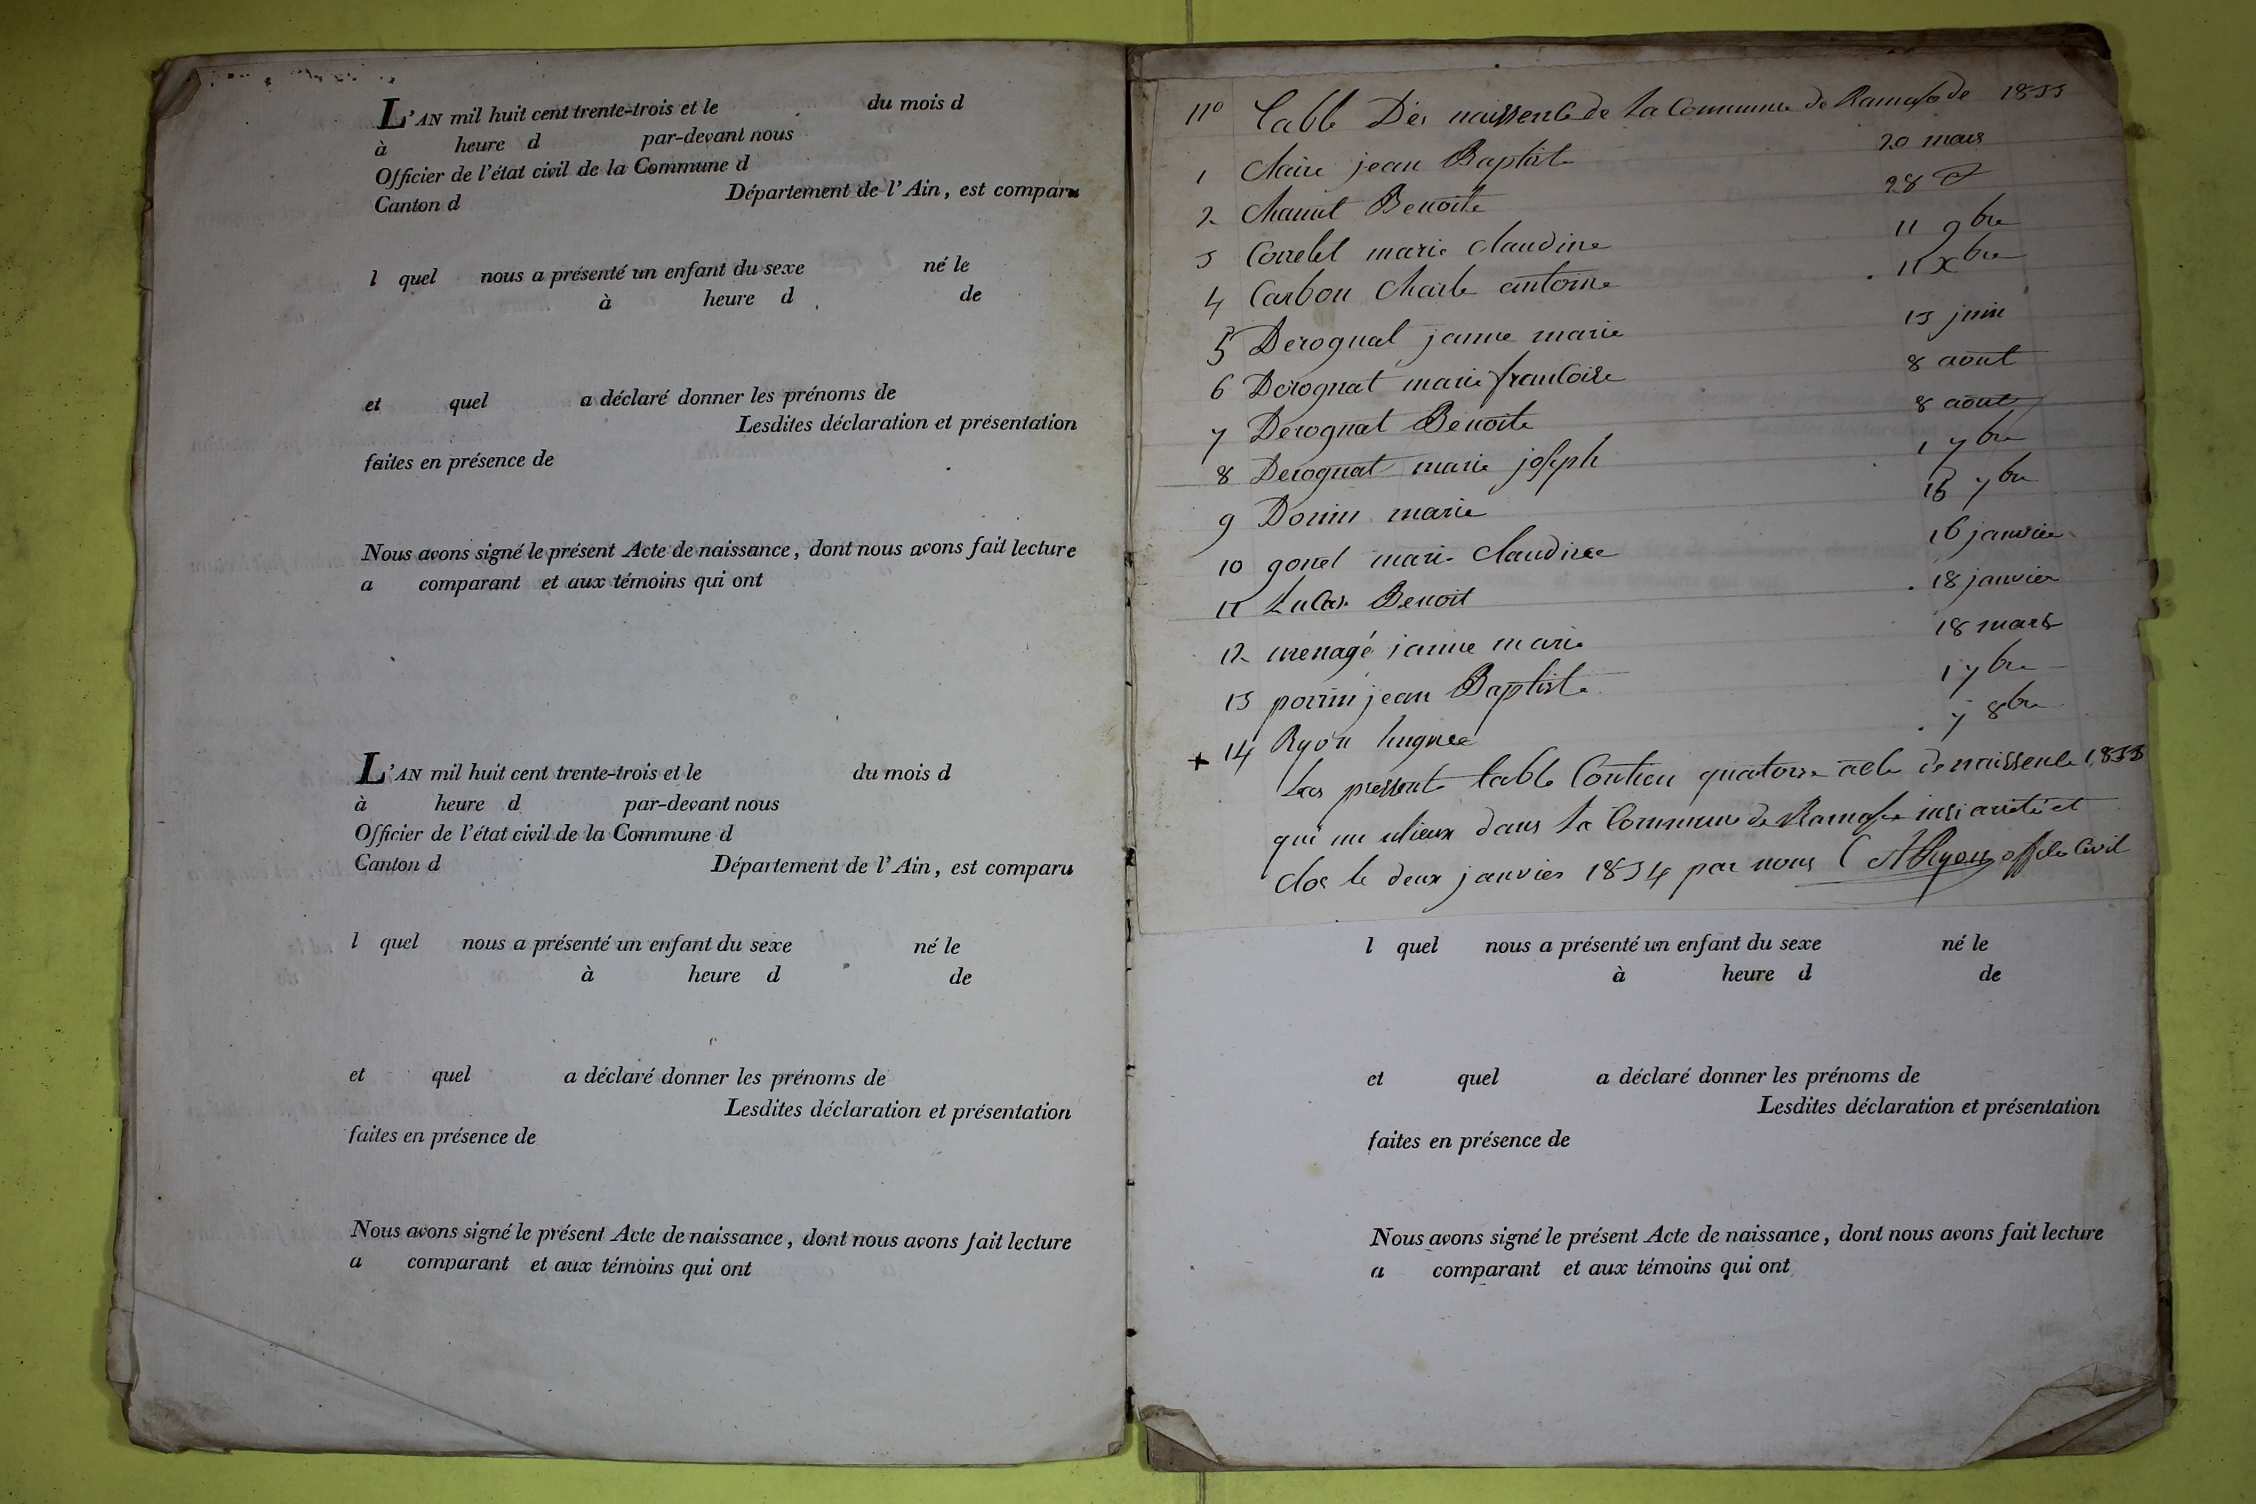 L'AN mil huit cent trente-trois et le du mois d
à heure d par-devant nous
Officier de l'état civil de la Commune d
Canton d Département de l'Ain, est comparu
l quel nous a présenté un enfant du sexe né le
à heure d de
et quel a déclaré donner les prénoms de
Lesdites déclaration et présentation
faites en présence de
Nous avons signé le présent Acte de naissance, dont nous avons fait lecture
a comparant et aux témoins qui ont
L'AN mil huit cent trente-trois et le du mois d
à heure d par-devant nous
Officier de l'état civil de la Commune d
Canton d Département de l'Ain, est comparu
l quel nous a présenté un enfant du sexe né le
à heure d de
et quel a déclaré donner les prénoms de
Lesdites déclaration et présentation
faites en présence de
Nous avons signé le présent Acte de naissance, dont nous avons fait lecture
a comparant et aux témoins qui ont
table Des naissence de la Commune de Ramasse de 1833
1 Claire jean Baptiste 20 mars
2 Benoite 28
3 Correlet marie claudine 11 9bre
4 Carbon Charle antoine 11 Xbre
5 Derognat janne marie 13 juin
6 Derognat marie francoise 8 aout
7 Derognat Benoite 8 aout
8 Derognat marie joseph 1 7bre
9 Donin marie 7bre
10 gonet marie Claudine 16 janvier
11 Lucas Benoit 18 janvier
12 menagé janne marie 18 mars
13 perrin jean Baptiste 1 7bre
+ 14 Ryon hugue 7 8bre
Les presente table Contien quatorse acte de naissence 1833
qui lieux dans la Commune de Ramasse insi arrété et
clos le deux janvier 1834 par nous Ryon Civil
l quel nous a présenté un enfant du sexe né le
à heure d de
et quel a déclaré donner les prénoms de
Lesdites déclaration et présentation
faites en présence de
Nous avons signé le présent Acte de naissance, dont nous avons fait lecture
a comparant et aux témoins qui ont